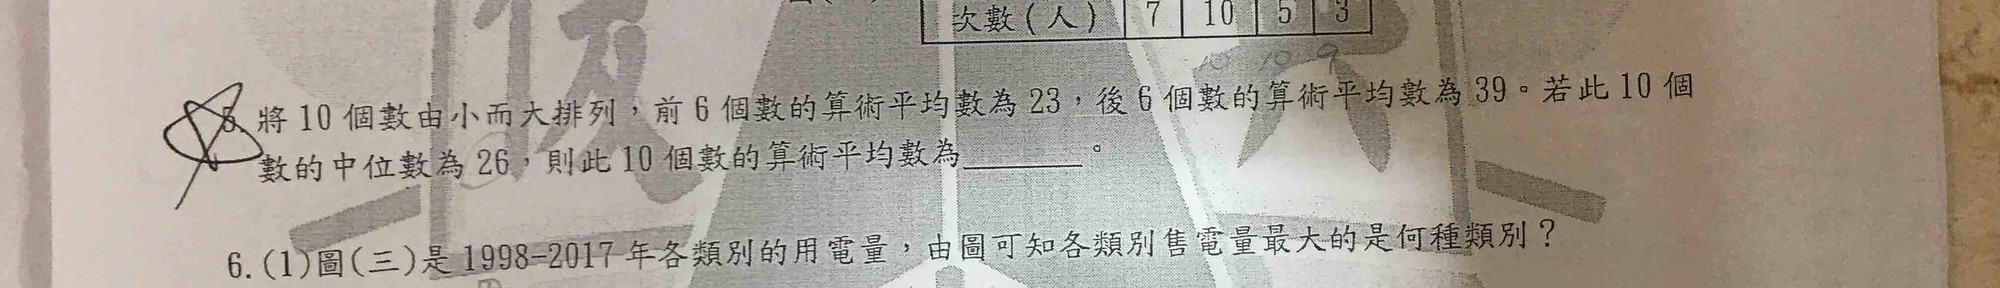 次數(人) 7 10 5 3
10 10 9
5. 將 10 個數由小而大排列，前 6 個數的算術平均數為 23，後 6 個數的算術平均數為 39。若此 10 個
數的中位數為 26，則此 10 個數的算術平均數為______。
6.(1)圖(三)是 1998-2017 年各類別的用電量，由圖可知各類別售電量最大的是何種類別？